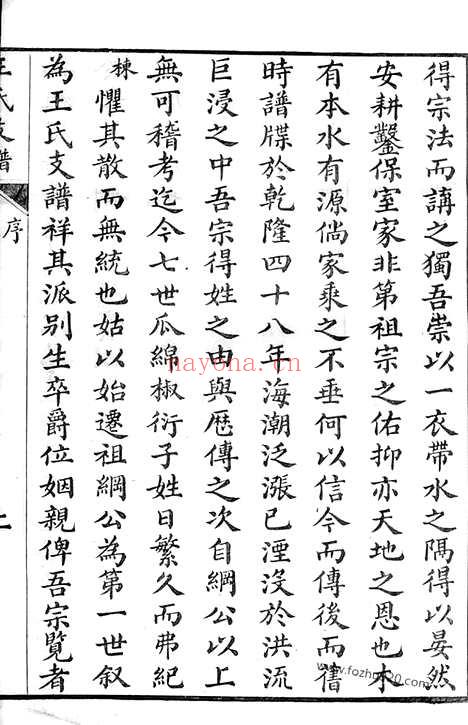 得宗法而講之獨吾崇以一衣帶水之隅得以晏然
安耕鑿保室家非第祖宗之佑抑亦天地之恩也木
有本水有源倘家乘之不垂何以信今而傳後而舊
時譜牒於乾隆四十八年海潮泛漲已湮没於洪流
巨浸之中吾宗得姓之由與歷傳之次自綱公以上
無可稽考迄今七世瓜綿椒衍子姓日繁久而弗紀
棟懼其散而無統也姑以始遷祖綱公為第一世叙
為王氏支譜祥其派别生卒爵位姻親俾吾宗覽者
王氏支譜
序
nayona.cn
www.fozhu920.com